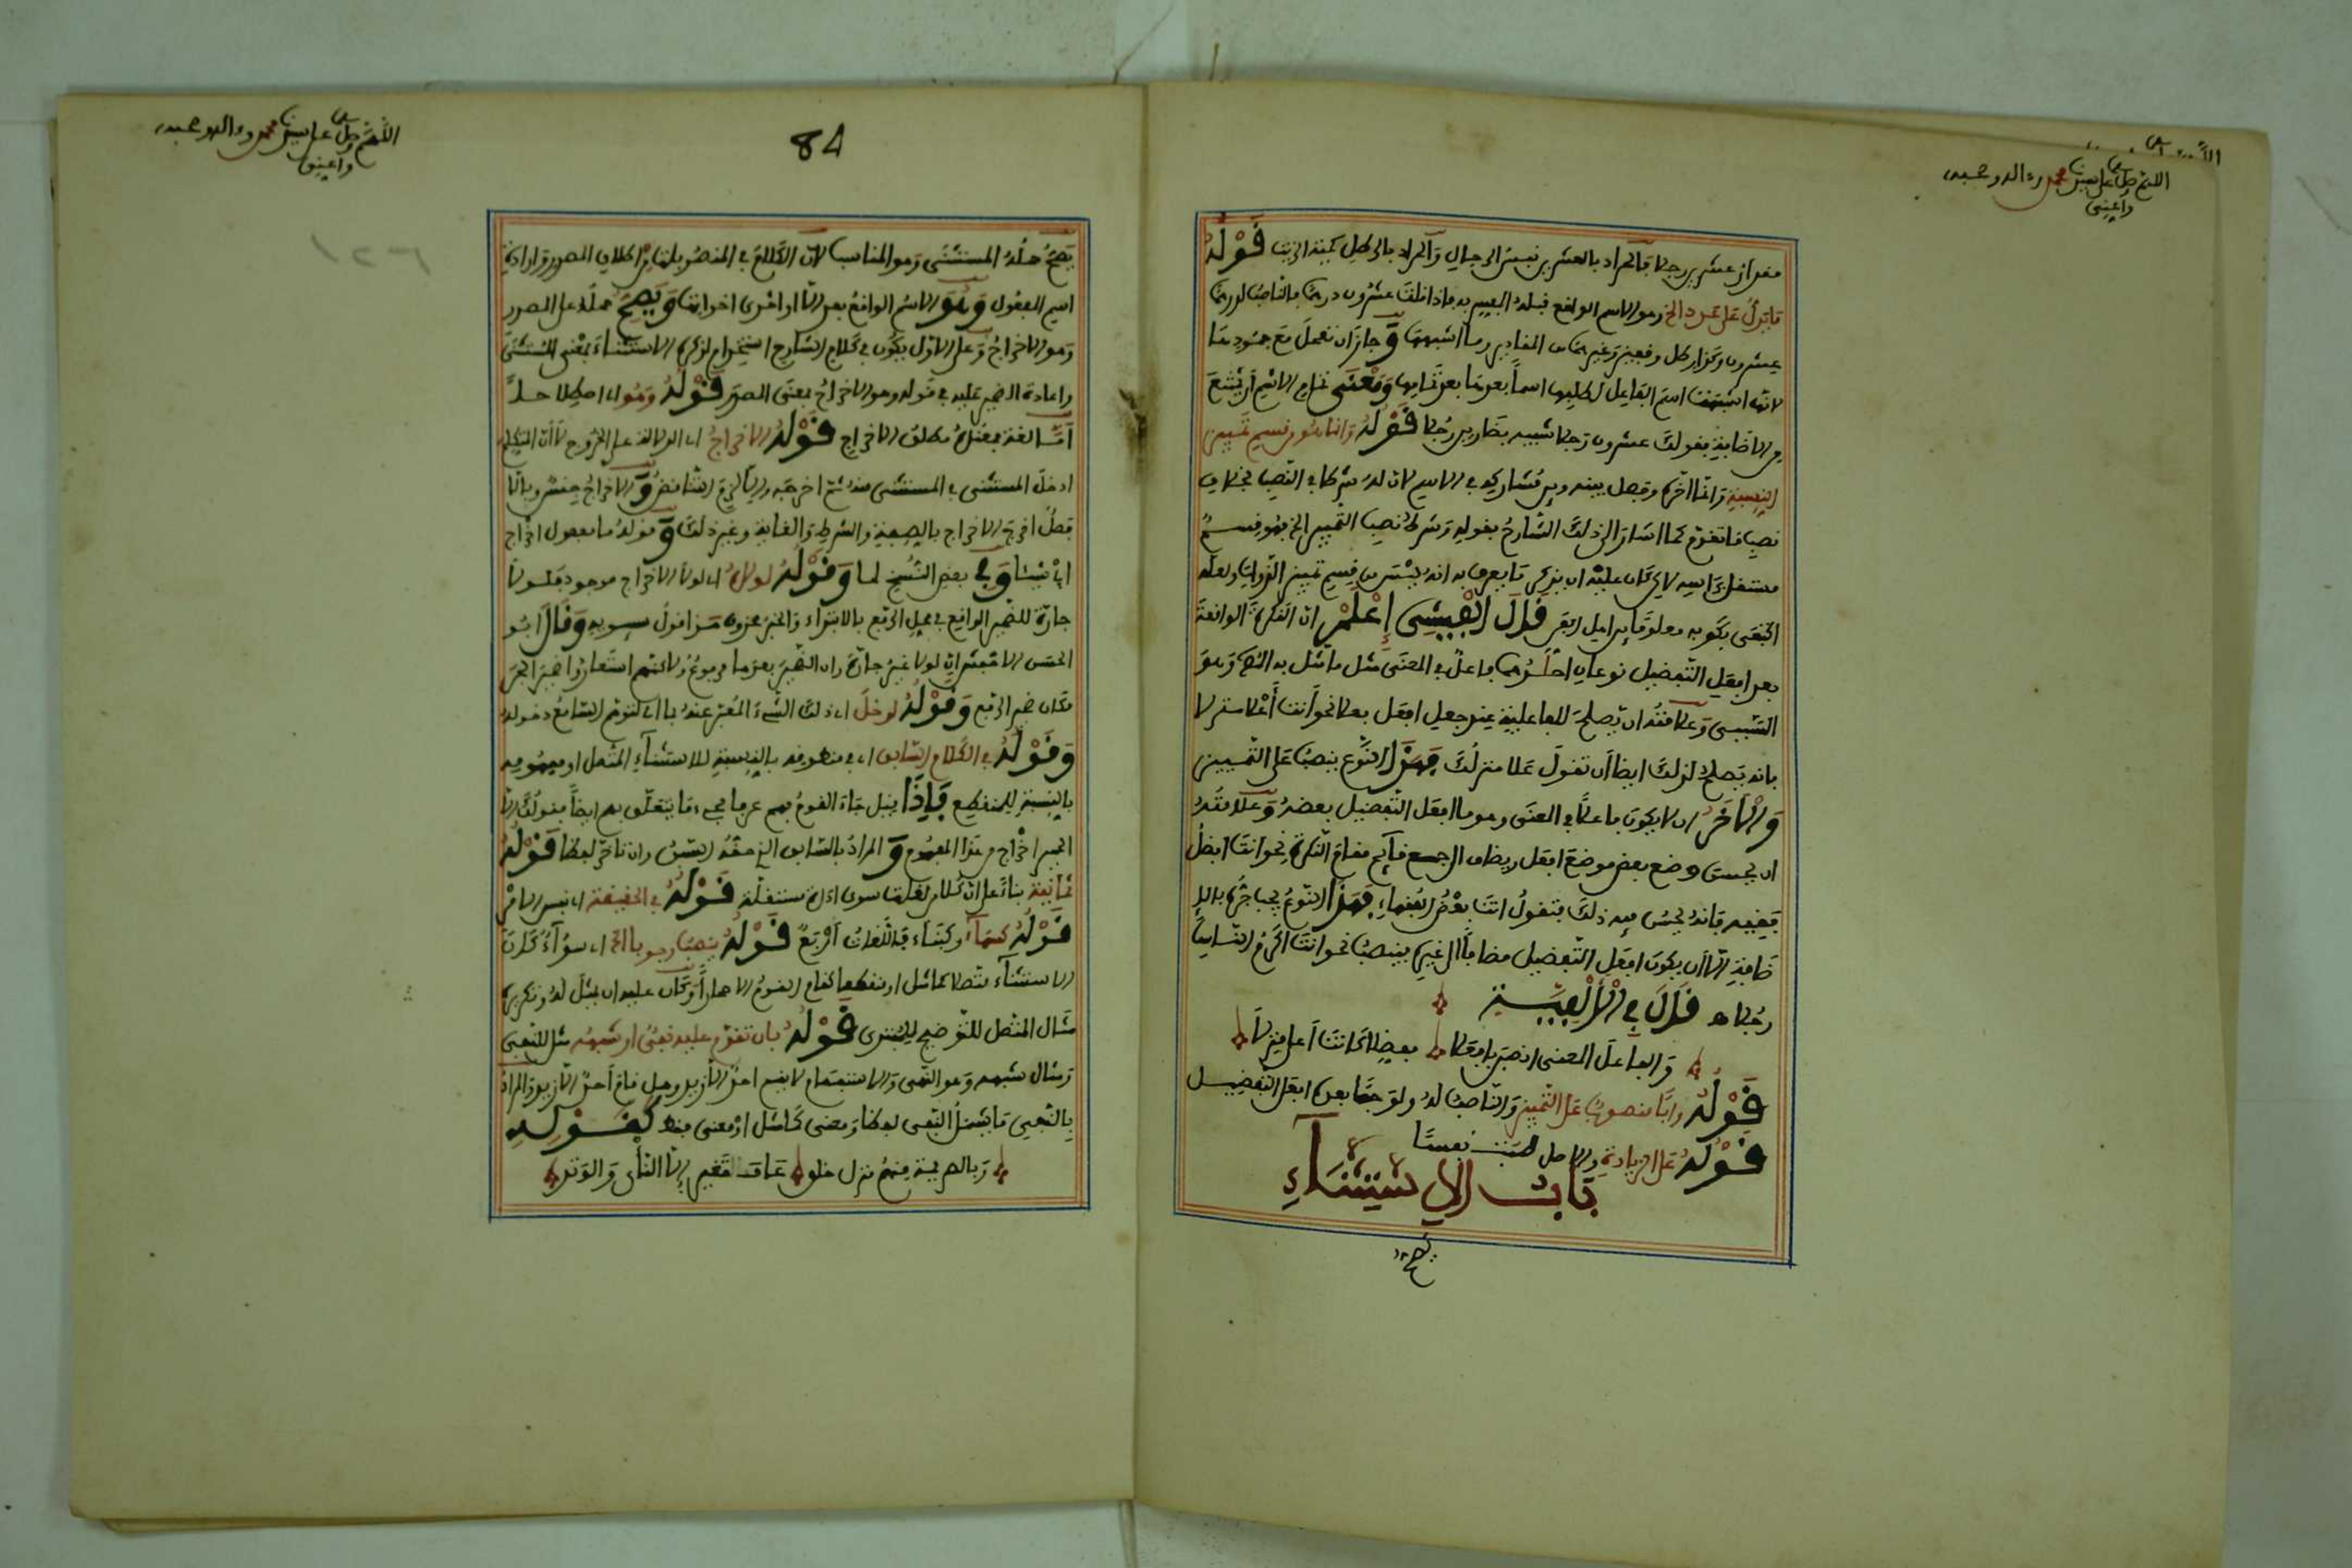 اللهم صل على سيدنا محمد وءاله وصحبه
وامين
مقدار عشرين رجلا فالمراد بالعشرين نفس الرجال والمراد بالرطل كمية الزيت قوله
ما يدل على عدد الخ وهو الاسم الواقع قبله المبهم فاذا قلت عشرون درهما فالناصب لدرهما
عشرون وكذا رطل وقفيز وغيرهما من المقادير وما اشبهها و جاز ان تعمل مع جمودها
لانها اشبهت اسم الفاعل لطلبها اسما بعدها بعد تمامها ومعنى تمام الاسم ان يمتنع
من الاضافة بقولك عشرون رجلا شبيه بضاربين رجلا قوله واما هو قسيم تمييز
النسبة وانما اخره وفصل بينه وبين مشاركه في الاسم لان له شركا في النصب بخلاف
نصب ما تقدم كما اشار الى ذلك الشارح بقوله وشرط نصب التمييز الخ فهو قسم
مستقل براسه لاكن كان عليه ان يذكر ما يعرف به انه ليس من قسيم تمييز الذوات ولعله
اكتفى بكونه معلوما من اول الامر قال الفيشي إعلم ان النكرة الواقعة
بعد افعل التفضيل نوعان احدهما فاعل في المعنى مثل ما مثل به الشارح وهو
السببي وعلامته ان يصلح للفاعلية عند جعل افعل فعلا نحو انت أعلا منزلا
فانه يصلح لذلك ايضا ان تقول علا منزلك فهذا النوع ينصب على التمييز
والاخر ان لا يكون فاعلا في المعنى وهو ما افعل التفضيل بعضه وعلامته
ان يحسن وضع بعض موضع افعل ويضاف الى جمع قائم مقام النكرة نحو انت افضل
فقيه فانه يحسن فيه ذلك فتقول انت بعض الفقهاء فهذا النوع يجب جره بالا
ضافة الا ان يكون افعل التفضيل مضافا الى غيره فينصب نحو انت اكرم الناس
رجلا ه قال في الالفية
والفاعل المعنى انصبن بافعلا مفضلا كانت أعلى منزلا
قوله واما منصوب على التمييز والناصب له ولو جمعا بعده افعل التفضيل
قوله على الزيادة والاصل طبت نفسا
باب الاستثناء
84
اللهم صل على سيدنا محمد وءاله وصحبه
وامين
يصح حمله المستثنى وهو المناسب لان الكلام في المنصوبات من اطلاق المصدر وارادة
اسم المفعول وهو الاسم الواقع بعد الا او احدى اخواتها ويصح حمله على المصدر
وهو الاخراج وعلى الاول يكون في كلام الشارح استخدام لذكره الاستثناء بمعنى المستثنى
واعادة الضمير عليه في قوله وهو الاخراج بمعنى المصدر قوله وهو اصطلاحا
أما لغة فمعناه مطلق الاخراج قوله الاخراج اى الدلالة على الخروج لا ان المتكلم
ادخل المستثنى في المستثنى منه ثم اخرجه والا لزم التناقض و الاخراج جنس وبالا
فصل اخرج الاخراج بالصفة والشرط والغاية وغير ذلك و قوله ما مفعول اخراج
وفي بعض النسخ لما وقوله لولاه اى لولا الاخراج موجود فلولا
جارة للضمير الواقع في محل الرفع بالابتداء والخبر محذوف هذا قول سيبويه وقال ابو
الحسن الاخفش ان لولا غير جارة وان الضمير بعدها مرفوع ولاكنهم استعاروا ضمير الجر
مكان ضمير الرفع وقوله لدخل اى ذلك الشيء المعبر عنه بما اى لتوهم السامع دخوله
وقوله في الكلام السابق اى في منطوقه بالنسبة للاستثناء المتصل او مفهومه
بالنسبة للمنقطع فاذا قيل جاء القوم فهم عرفا مجيء ما يتعلق بهم ايضا فقولك الا
الحمير اخراج من هذا المفهوم و المراد بالسابق الذي حقه السبق وان تاخر لفظا قوله
ثمانية بناء على ان كلا من لغات سوى اداة مستقلة قوله في الحقيقة اى نفس الامر
قوله كسماء وكبناء فاللغات أربع قوله ينصب وجوبا الخ اى سواء كان
الاستثناء متصلا كما مثل او منقطعا كقام القوم الا حمارا وكان عليه ان يمثل له وتكرير
مثال المتصل للتوضيح للمبتدى قوله بان تقدم عليه نفي او شبهه مثل للنفي
ومثال شبهه وهو النهي والاستفهام لا يقم احد الا زيد وهل قام أحد الا زيد والمراد
بالنفي ما يشمل النفي لفظا ومعنى كما مثل او معنى فقط كقوله
وبالصريمة منهم منزل خلق عاف تغير الا النأى والوتد